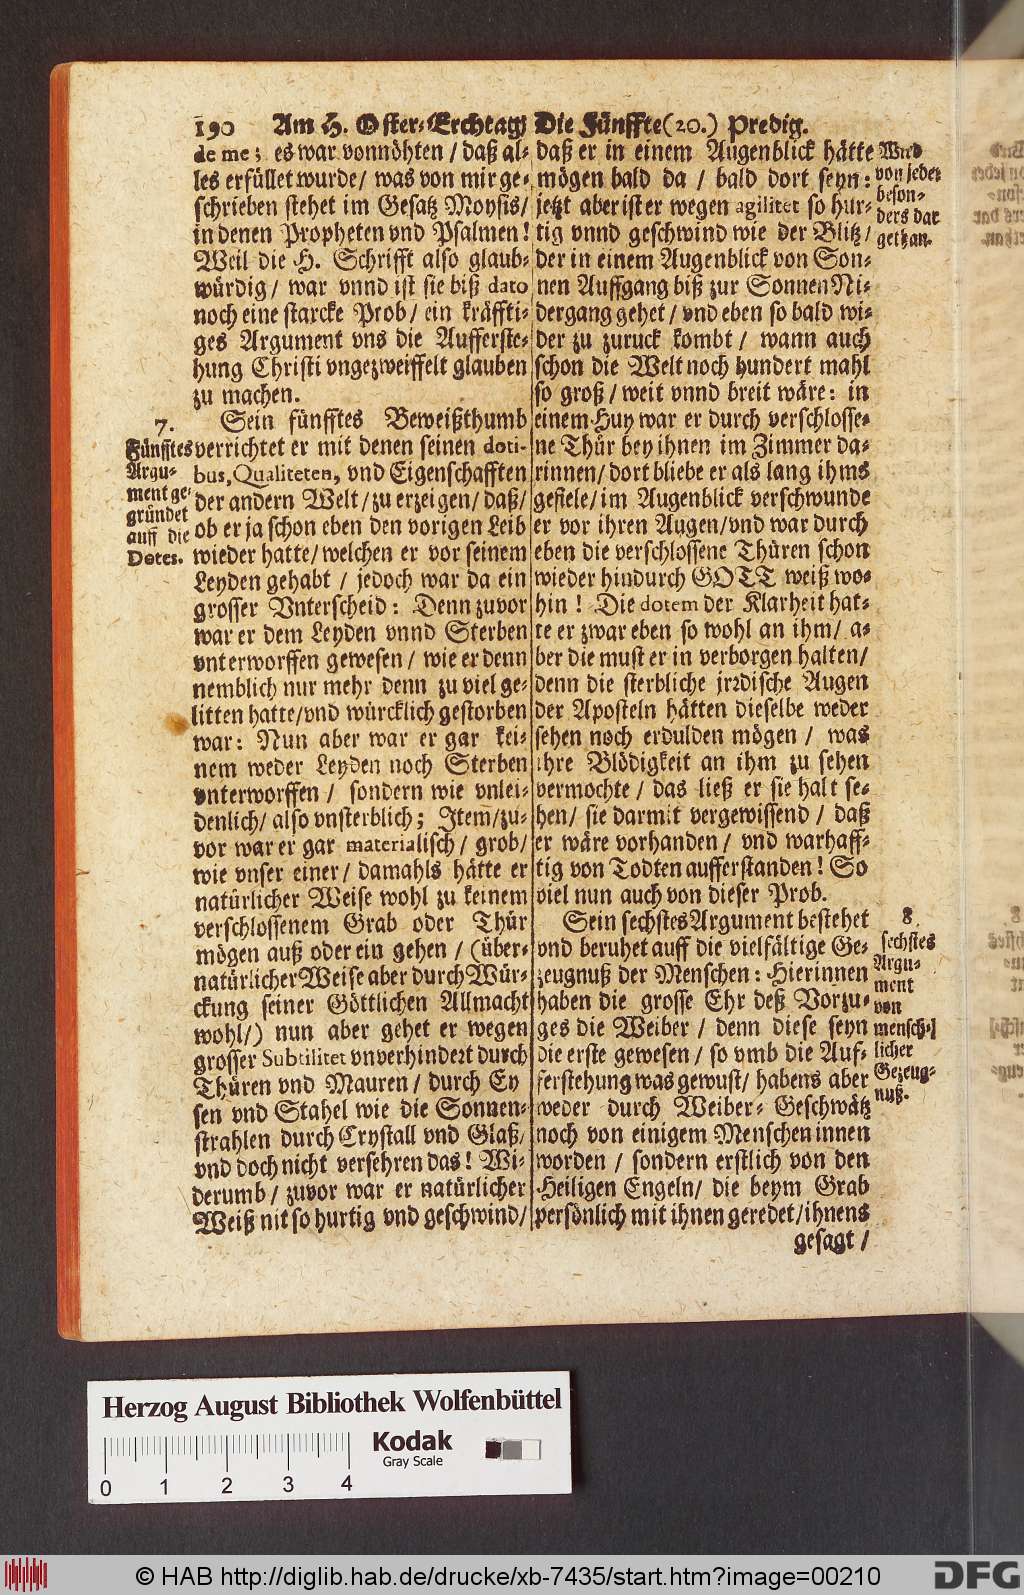 190 Am H. Oster-Erchtag Die Fünffte (20.) Predig.
de me; es war vonnöhten / daß al-
les erfüllet wurde / was von mir ge-
schrieben stehet im Gesatz Moysis /
in denen Propheten vnd Psalmen!
Weil die H. Schrifft also glaub-
würdig / war vnnd ist sie biß dato
noch eine starcke Prob / ein kräffti-
ges Argument vns die Aufferste-
hung Christi vngezweiffelt glauben
zu machen.
7.
Fünfftes
Argu-
ment ge-
gründet
auff die
Dotes.
Sein fünfftes Beweißthumb
verrichtet er mit denen seinen doti-
bus, Qualiteten, vnd Eigenschafften
der andern Welt / zu erzeigen / daß /
ob er ja schon eben den vorigen Leib
wieder hatte / welchen er vor seinem
Leyden gehabt / jedoch war da ein
grosser Vnterscheid: Denn zuvor
war er dem Leyden vnnd Sterben
vnterworffen gewesen / wie er denn
nemblich nur mehr denn zu viel ge-
litten hatte / vnd würcklich gestorben
war: Nun aber war er gar kei-
nem weder Leyden noch Sterben
vnterworffen / sondern wie vnlei-
denlich / also vnsterblich; Item / zu-
vor war er gar materialisch / grob /
wie vnser einer / damahls hätte er
natürlicher Weise wohl zu keinem
verschlossenem Grab oder Thür
mögen auß oder ein gehen / (über-
natürlicher Weise aber durch Wür-
ckung seiner Göttlichen Allmacht
wohl /) nun aber gehet er wegen
grosser Subtilitet vnverhindert durch
Thüren vnd Mauren / durch Ey
sen vnd Stahel wie die Sonnen-
strahlen durch Crystall vnd Glaß /
vnd doch nicht versehren das! Wi-
derumb / zuvor war er natürlicher
Weiß nit so hurtig vnd geschwind /
daß er in einem Augenblick hätte
mögen bald da / bald dort seyn:
jetzt aber ist er wegen agilitet so hur-
tig vnnd geschwind wie der Blitz /
der in einem Augenblick von Son-
nen Auffgang biß zur Sonnen Ni-
dergang gehet / vnd eben so bald wi-
der zu zuruck kombt / wann auch
schon die Welt noch hundert mahl
so groß / weit vnnd breit wäre: in
einem Huy war er durch verschlosse-
ne Thür bey ihnen im Zimmer da-
rinnen / dort bliebe er als lang ihms
gefiele / im Augenblick verschwunde
er vor ihren Augen / vnd war durch
eben die verschlossene Thüren schon
wieder hindurch GOTT weiß wo-
hin! Die dotem der Klarheit hat-
te er zwar eben so wohl an ihm / a-
ber die must er in verborgen halten /
denn die sterbliche jrrdische Augen
der Aposteln hätten dieselbe weder
sehen noch erdulden mögen / was
ihre Blödigkeit an ihm zu sehen
vermochte / das ließ er sie halt se-
hen / sie darmit vergewissend / daß
er wäre vorhanden / vnd warhaff-
tig von Todten aufferstanden! So
viel nun auch von dieser Prob.
Sein sechstes Argument bestehet
vnd beruhet auff die vielfältige Ge-
zeugnuß der Menschen: Hierinnen
haben die grosse Ehr deß Vorzu-
ges die Weiber / denn diese seyn
die erste gewesen / so vmb die Auf-
ferstehung was gewust / habens aber
weder durch Weiber-Geschwätz
noch von einigem Menschen innen
worden / sondern erstlich von den
Heiligen Engeln / die beym Grab
persönlich mit ihnen geredet / ihnens
gesagt /
Wird
von jeder
beson-
ders dar
gethan.
8.
sechstes
Argu-
ment
von
mensch-
licher
Gezeug-
nuß.
Herzog August Bibliothek Wolfenbüttel
Kodak
Gray Scale
0 1 2 3 4
© HAB http://diglib.hab.de/drucke/xb-7435/start.htm?image=00210
DFG